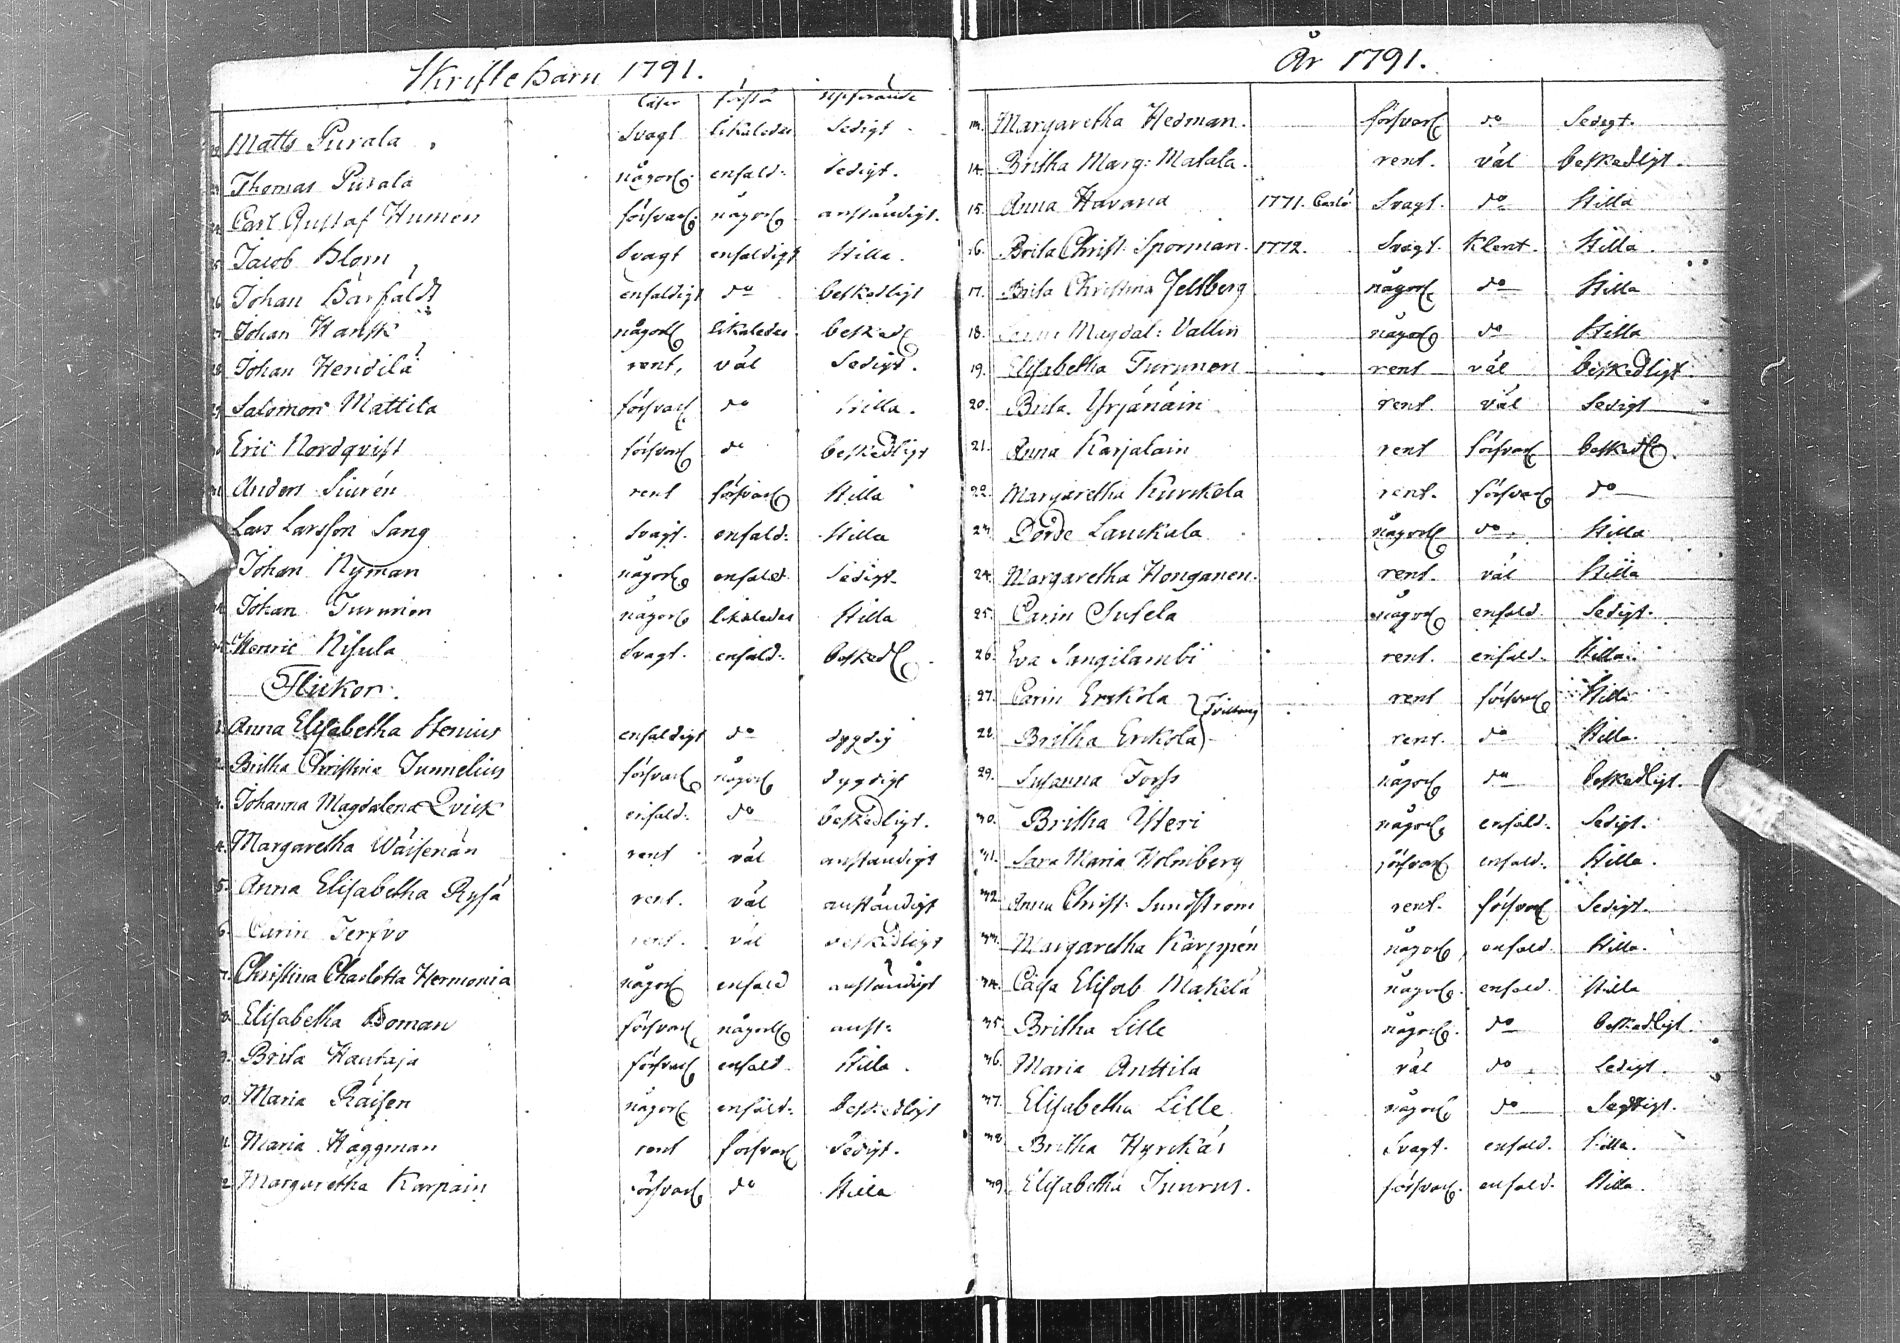 Skriftebarn 1791.
Läser förstå uppförande
Matts Purala svagt likaledes sedigt
Thomas Purala någorl. enfald. sedigt.
Carl Gustaf Humon försvarl. någorl. anständigt.
Jacob Blom svagt enfaldigt stilla.
Johan Bärfäldt enfaldigt do beskedligt
Johan Hansk någorl. likaledes beskedl.
Johan Hendilä rent, väl sedigt.
Salomon Mattila försvarl. do stilla.
Eric Nordqvist försvarl. do beskedligt
Anders Siurén rent försvarl. stilla
Lars Larsson Sang svagt. enfald: stilla
Johan Nyman någorl. enfald. sedigt.
Johan Turunen någorl. likaledes stilla
Henric Nisula svagt. enfald: beskedl.
Flickor.
Anna Elisabetha Stenius enfaldigt do dygdig
Britha Christina Tunnelius försvarl. någorl. dygdigt
Johanna Magdalena Qvick enfald: do beskedligt.
4. Margaretha Wäisenän rent väl anständigt
5. Anna Elisabetha Rysä rent. väl anständigt
6. Carin Jerfvo rent. väl beskedligt
7. Christina Charlotta Hermonia någorl. enfald anständigt
8. Elisabetha Boman försvarl. någorl. anst:
9. Brita Hautaja försvarl. enfald. stilla.
Maria Räisen någorl. enfald: beskedligt
Maria Häggman rent försvarl. sedigt.
Margaretha Karpain försvarl. do stilla
År 1791.
13. Margaretha Hedman. försvarl. do sedigt.
14. Britha Marg: Matala. rent. väl beskedligt.
15. Anna Havana 1771. Carlö svagt. do stilla
16. Brita Christ: Sporman. 1772. svagt. klent. stilla.
17. Brita Christina Jelsberg någorl. do stilla
18. Magdal: Vallin någorl. do stilla
19. Elisabetha Turunen rent väl beskedligt.
20. Brita Yrjänäin rent. väl sedigt
21. Anna Karjalain rent försvarl. beskedl.
22. Margaretha Kurckela rent. försvarl. do
23. Dorde Lauckala någorl. do. stilla
24. Margaretha Honganen. rent. väl stilla
25. Carin Susela någorl. enfald. sedigt.
26. Eva Sangilambi rent. enfald. stilla.
27. Carin Erckola } Tvilling rent försvarl. stilla
28. Britha Erckola rent. do stilla.
29. Susanna Forss någorl. do beskedligt.
30. Britha Ysteri någorl. enfald. sedigt.
31. Sara Maria Holmberg försvarl. enfald. stilla.
32. Anna Christ: Sundström rent. försvarl. sedigt.
33. Margaretha Kärppén någorl. enfald. stilla.
34. Caisa Elisab Mäkelä någorl. enfald. stilla
35. Britha Lille någorl. do beskedligt
36. Maria Anttila väl do. sedigt.
37. Elisabetha Lille någorl. do sedigt.
38. Britha Hyrckäs svagt. enfald. stilla.
39. Elisabetha Tuurus. försvarl. enfald. stilla.